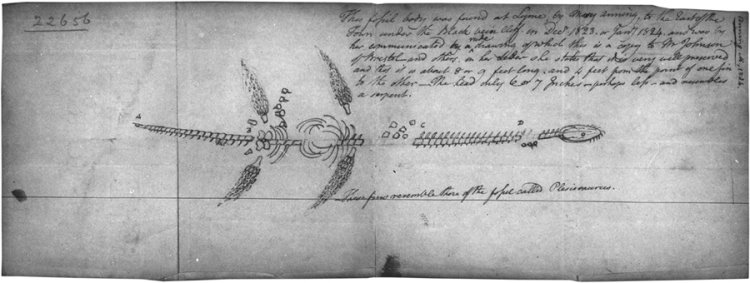 22656
This fossil body was found at Lyme, by Mary Anning, to the East of the
Town under the Black Ven Cliff in Decr 1823. or Jany 1824. and was by
her communicated by a rude drawing of which this is a copy to Mr Johnson
of Bristol and others, in her letter she states this is very well preserved
and this is is about 8 or 9 feet long, and 4 feet from the point of one fin
to the other — The head only 6 or 7 Inches or perhaps less — and resembles
a serpent.
These fins resemble those of the fossil called Plesiosaurus.